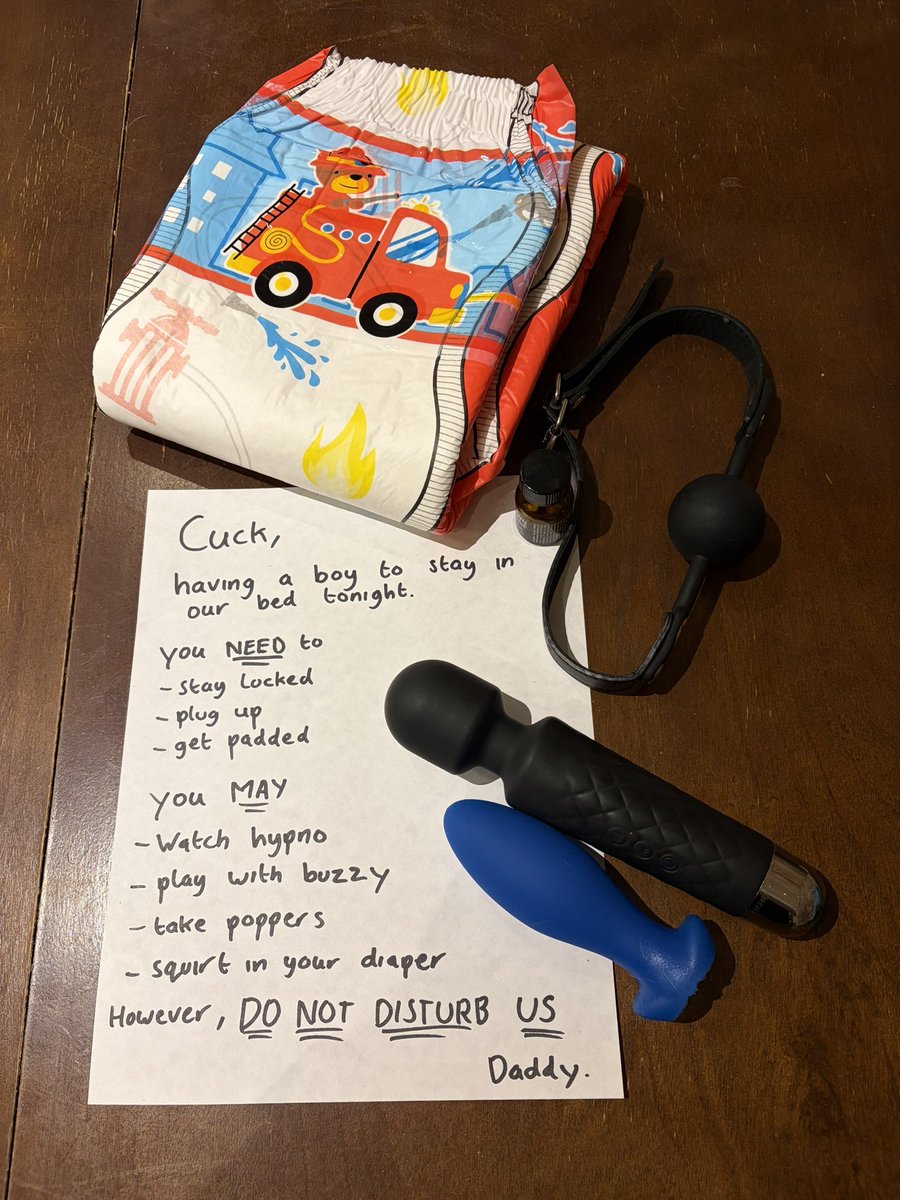 Cuck,
having a boy to stay in
our bed tonight.
you NEED to
- stay locked
- plug up
- get padded
you MAY
- Watch hypno
- play with buzzy
- take poppers
- squirt in your diaper
However, DO NOT DISTURB US
Daddy.